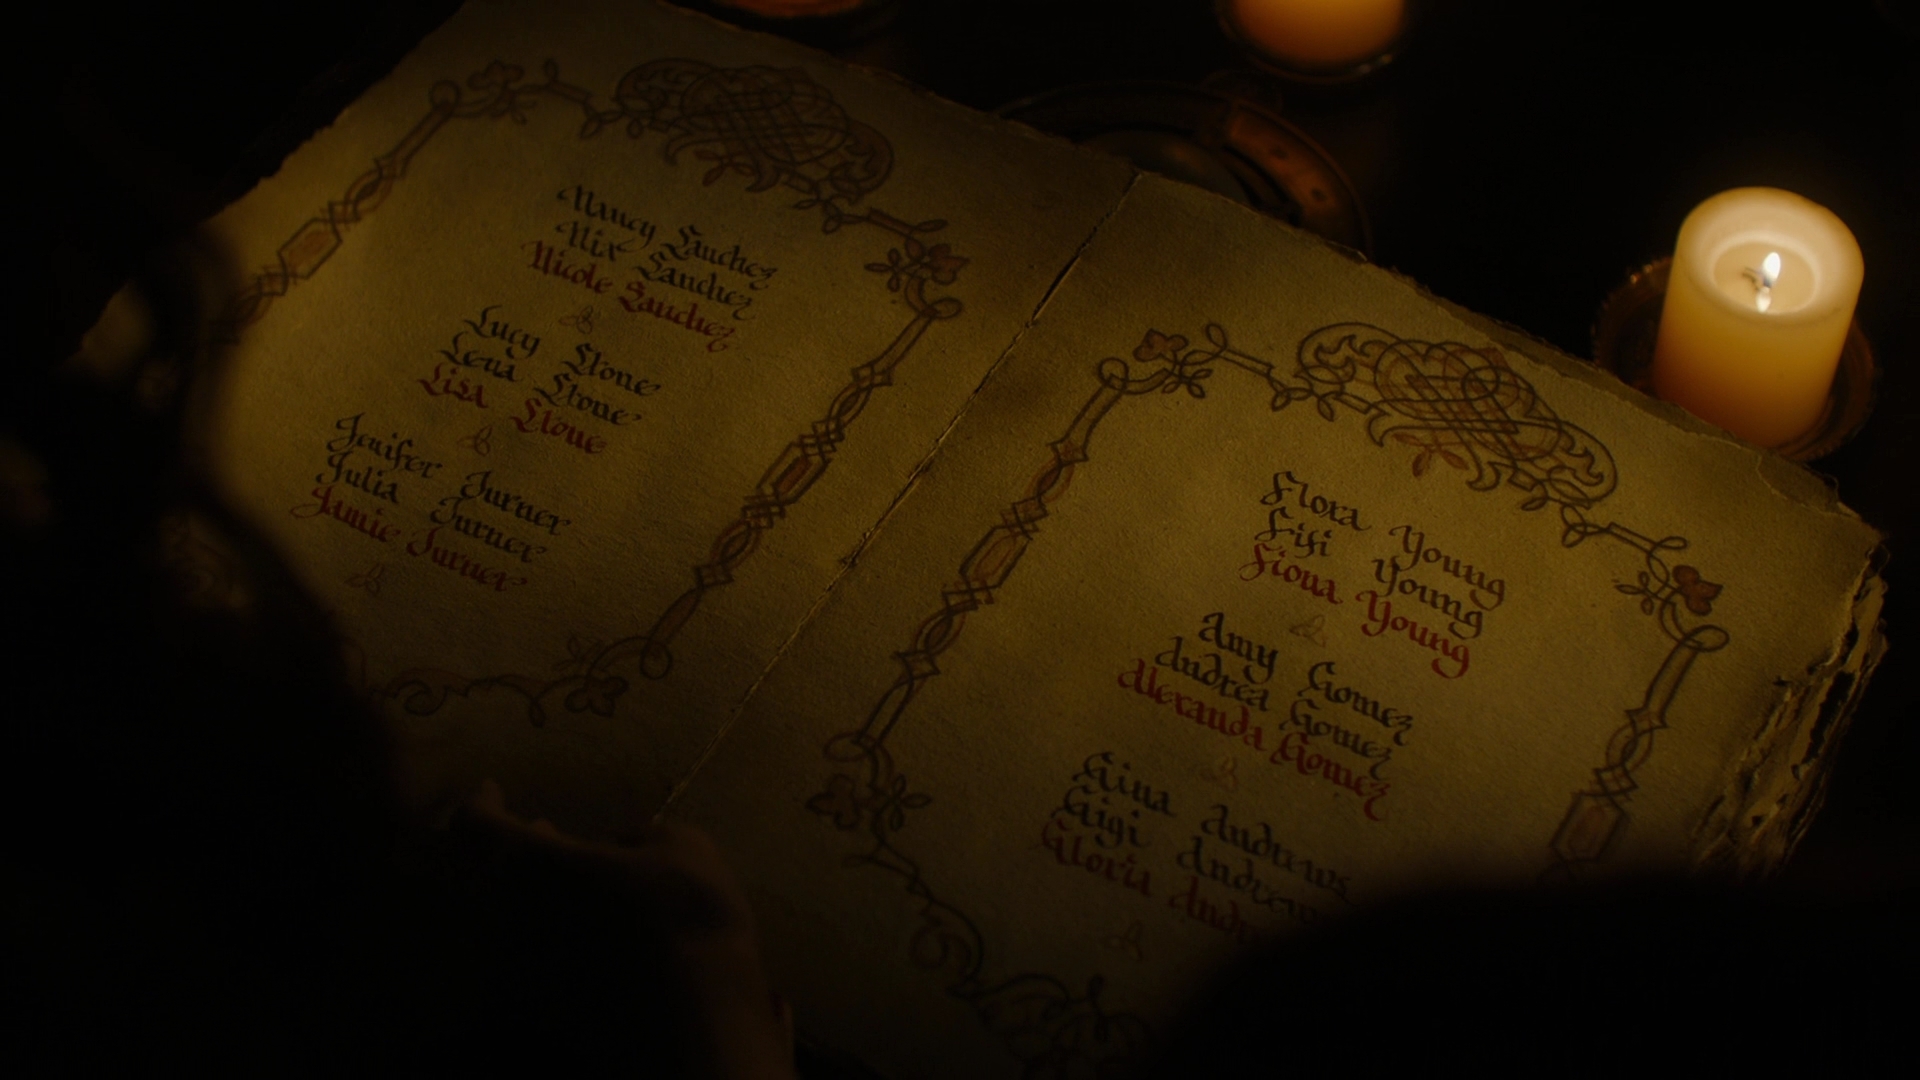 Nancy Sanchez
Nix Sanchez
Nicole Sanchez
Lucy Stone
Lena Stone
Lisa Stone
Jenifer Turner
Julia Turner
Jamie Turner
Flora Young
Fifi Young
Fiona Young
Amy Gomez
Andrea Gomez
Alexanda Gomez
Gina Andrews
Gigi Andrews
Gloria